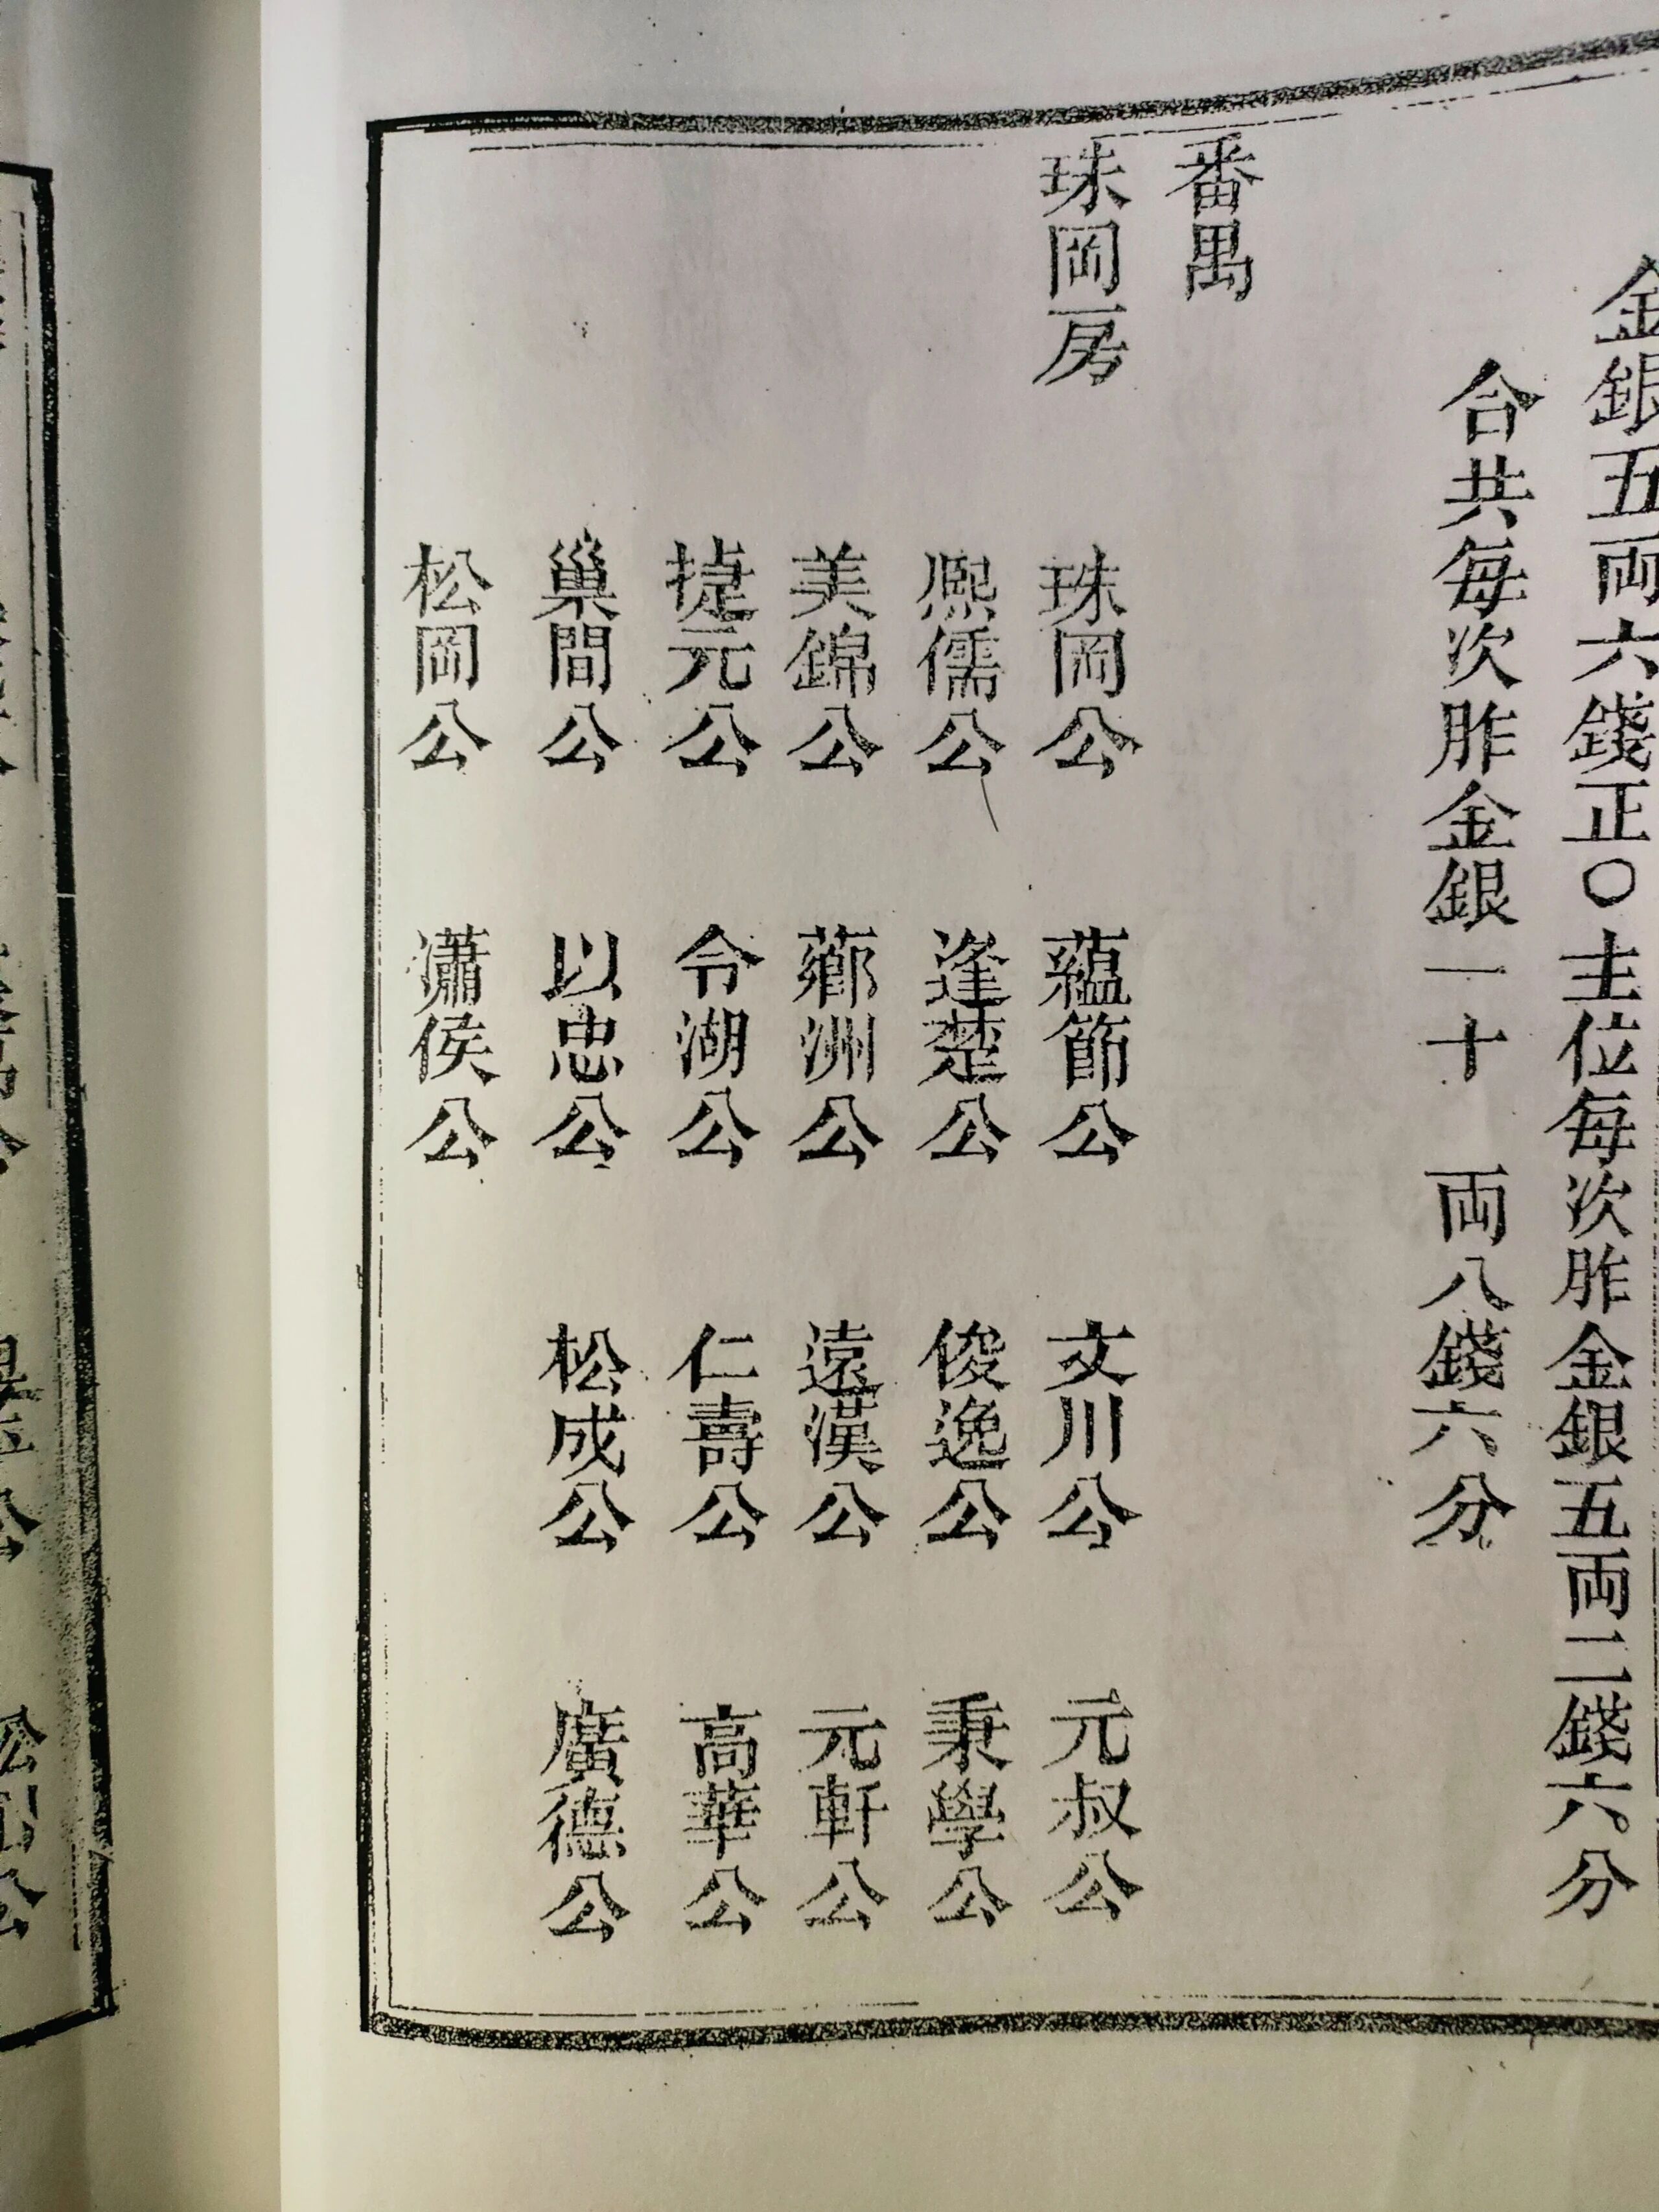 金銀五両六錢正〇主位每次胙金銀五両二錢六分
合共每次胙金銀一十両八錢六分
番禺
珠岡房
珠岡公 蘊節公 文川公 元叔公
熙儒公 逢楚公 俊逸公 秉學公
美錦公 薌洲公 遠漢公 元軒公
捷元公 令湖公 仁壽公 高華公
巢間公 以忠公 松成公 廣德公
松岡公 瀟侯公